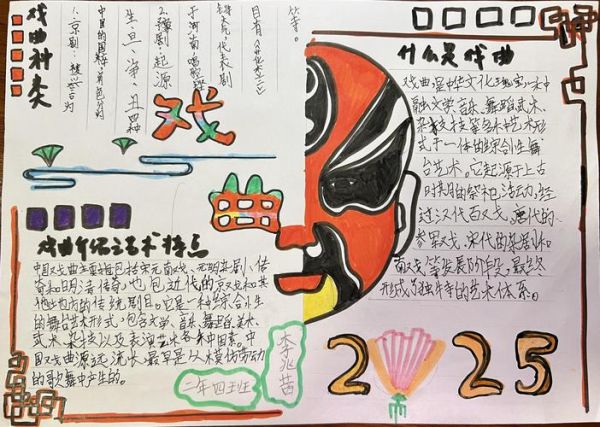 戏曲种类
1、京剧:被誉为
中国的国粹,角色分为
生、旦、净、丑四种
2、豫剧:起源
于河南,唱腔铿
锵大气,代表剧
目有《花木兰》
等。
戏
曲
什么是戏曲
戏曲是中华文化瑰宝,集
融文学、音乐、舞蹈、武术、
杂技等多种艺术形
式于一体的综合性舞
台艺术。它起源于上古
时期的祭祀活动,经
过汉代百戏、唐代的
参军戏、宋代的杂剧和
南戏等发展阶段,最终
形成了独特的艺术体系。
戏曲介绍之艺术特点
中国戏曲主要包括宋元南戏、元明杂剧、传
奇和明清传奇,也包近代的京戏和其
他地方的传统剧目。它是一种综合性
的舞台艺术形式,包含文学、音乐、舞蹈、美术、
武术、杂技以及表演艺术各种因素。中
国戏曲源远流长,最早是从模仿劳动
的歌舞中产生的。
二年四班
李兆茜
2025